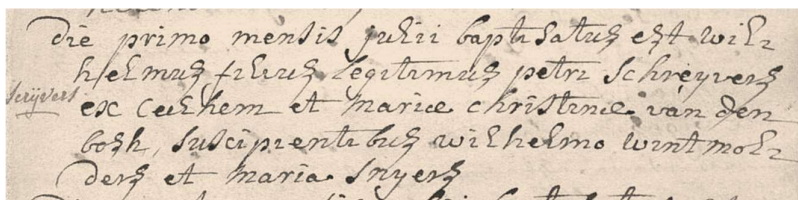 Die primo mensis julii baptisatus est wil=
helmus filius legitimus petri Schreyvers
Scrijvers
ex Ceulhem et mariæ christinæ van den
bosh, suscipientibus wilhelmo wintmol=
ders et maria Snyers